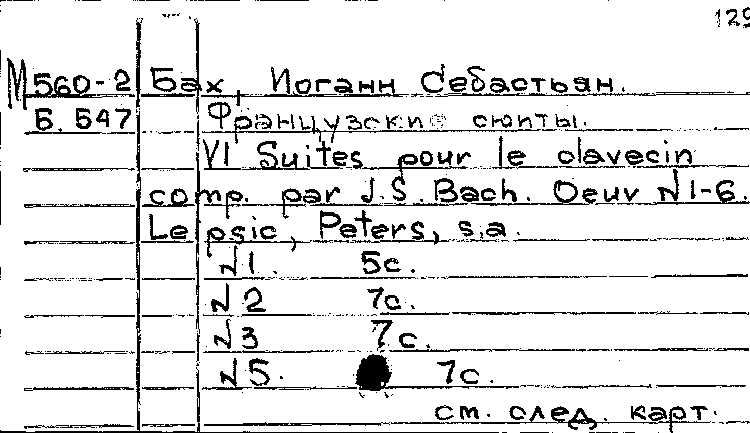 129
М 560-2 Бах, Иоганн Себастьян.
Б. 547 Французские сюиты.
VI Suites pour le clavecin
comp. par J.S. Bach. Oeuv №1-6.
Leipsic, Peters, s.a.
№1. 5с.
№2 7с.
№3 7с.
№5. 7с.
см. след. карт.